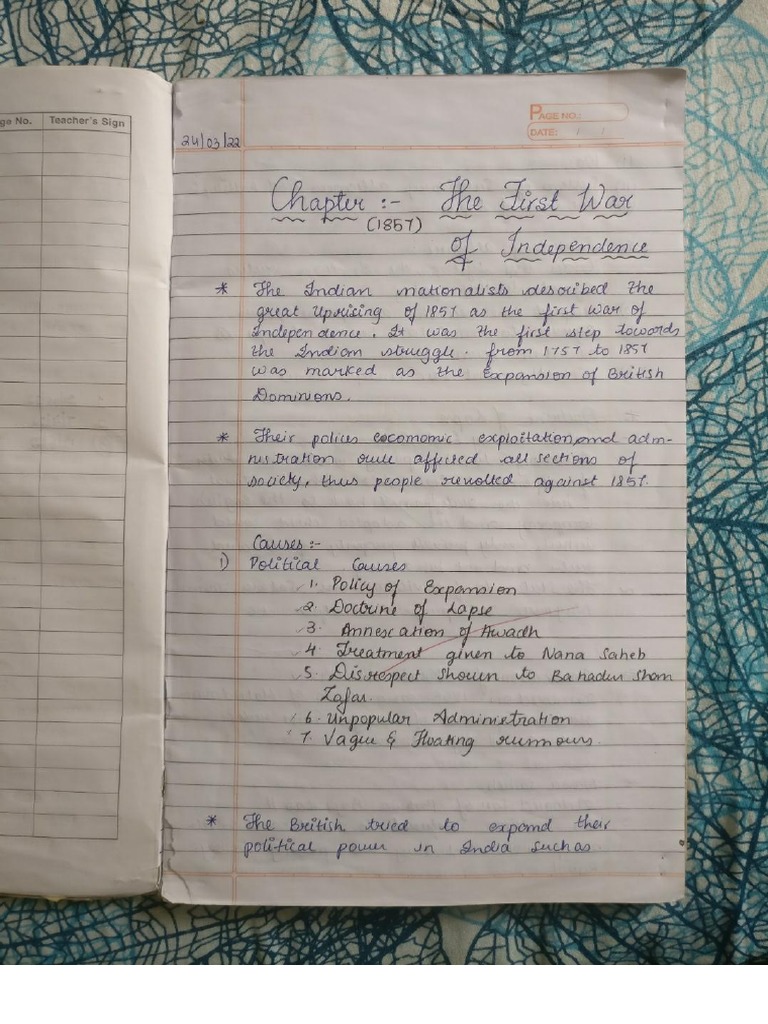 ge No. Teacher's Sign
PAGE NO.:
DATE: / /
24/03/22
Chapter :- The First War
(1857)
of Independence
* The Indian nationalists described the
great Uprising of 1857 as the first war of
Independence. It was the first step towards
the Indian struggle. from 1757 to 1857
was marked as the Expansion of British
Dominions.
* Their polices ecomomic exploitation, and adm-
nistration rule affected all sections of
society, thus people revolted against 1857.
Causes :-
1) Political Causes
1. Policy of Expansion
2. Doctrine of Lapse
3. Annexation of Awadh
4. Treatment given to Nana Saheb
5. Disrespect shown to Bahadur Sham
Zafar.
6. Unpopular Administration
7. Vague & Floating rumours.
* The British tried to expand their
political power in India such as